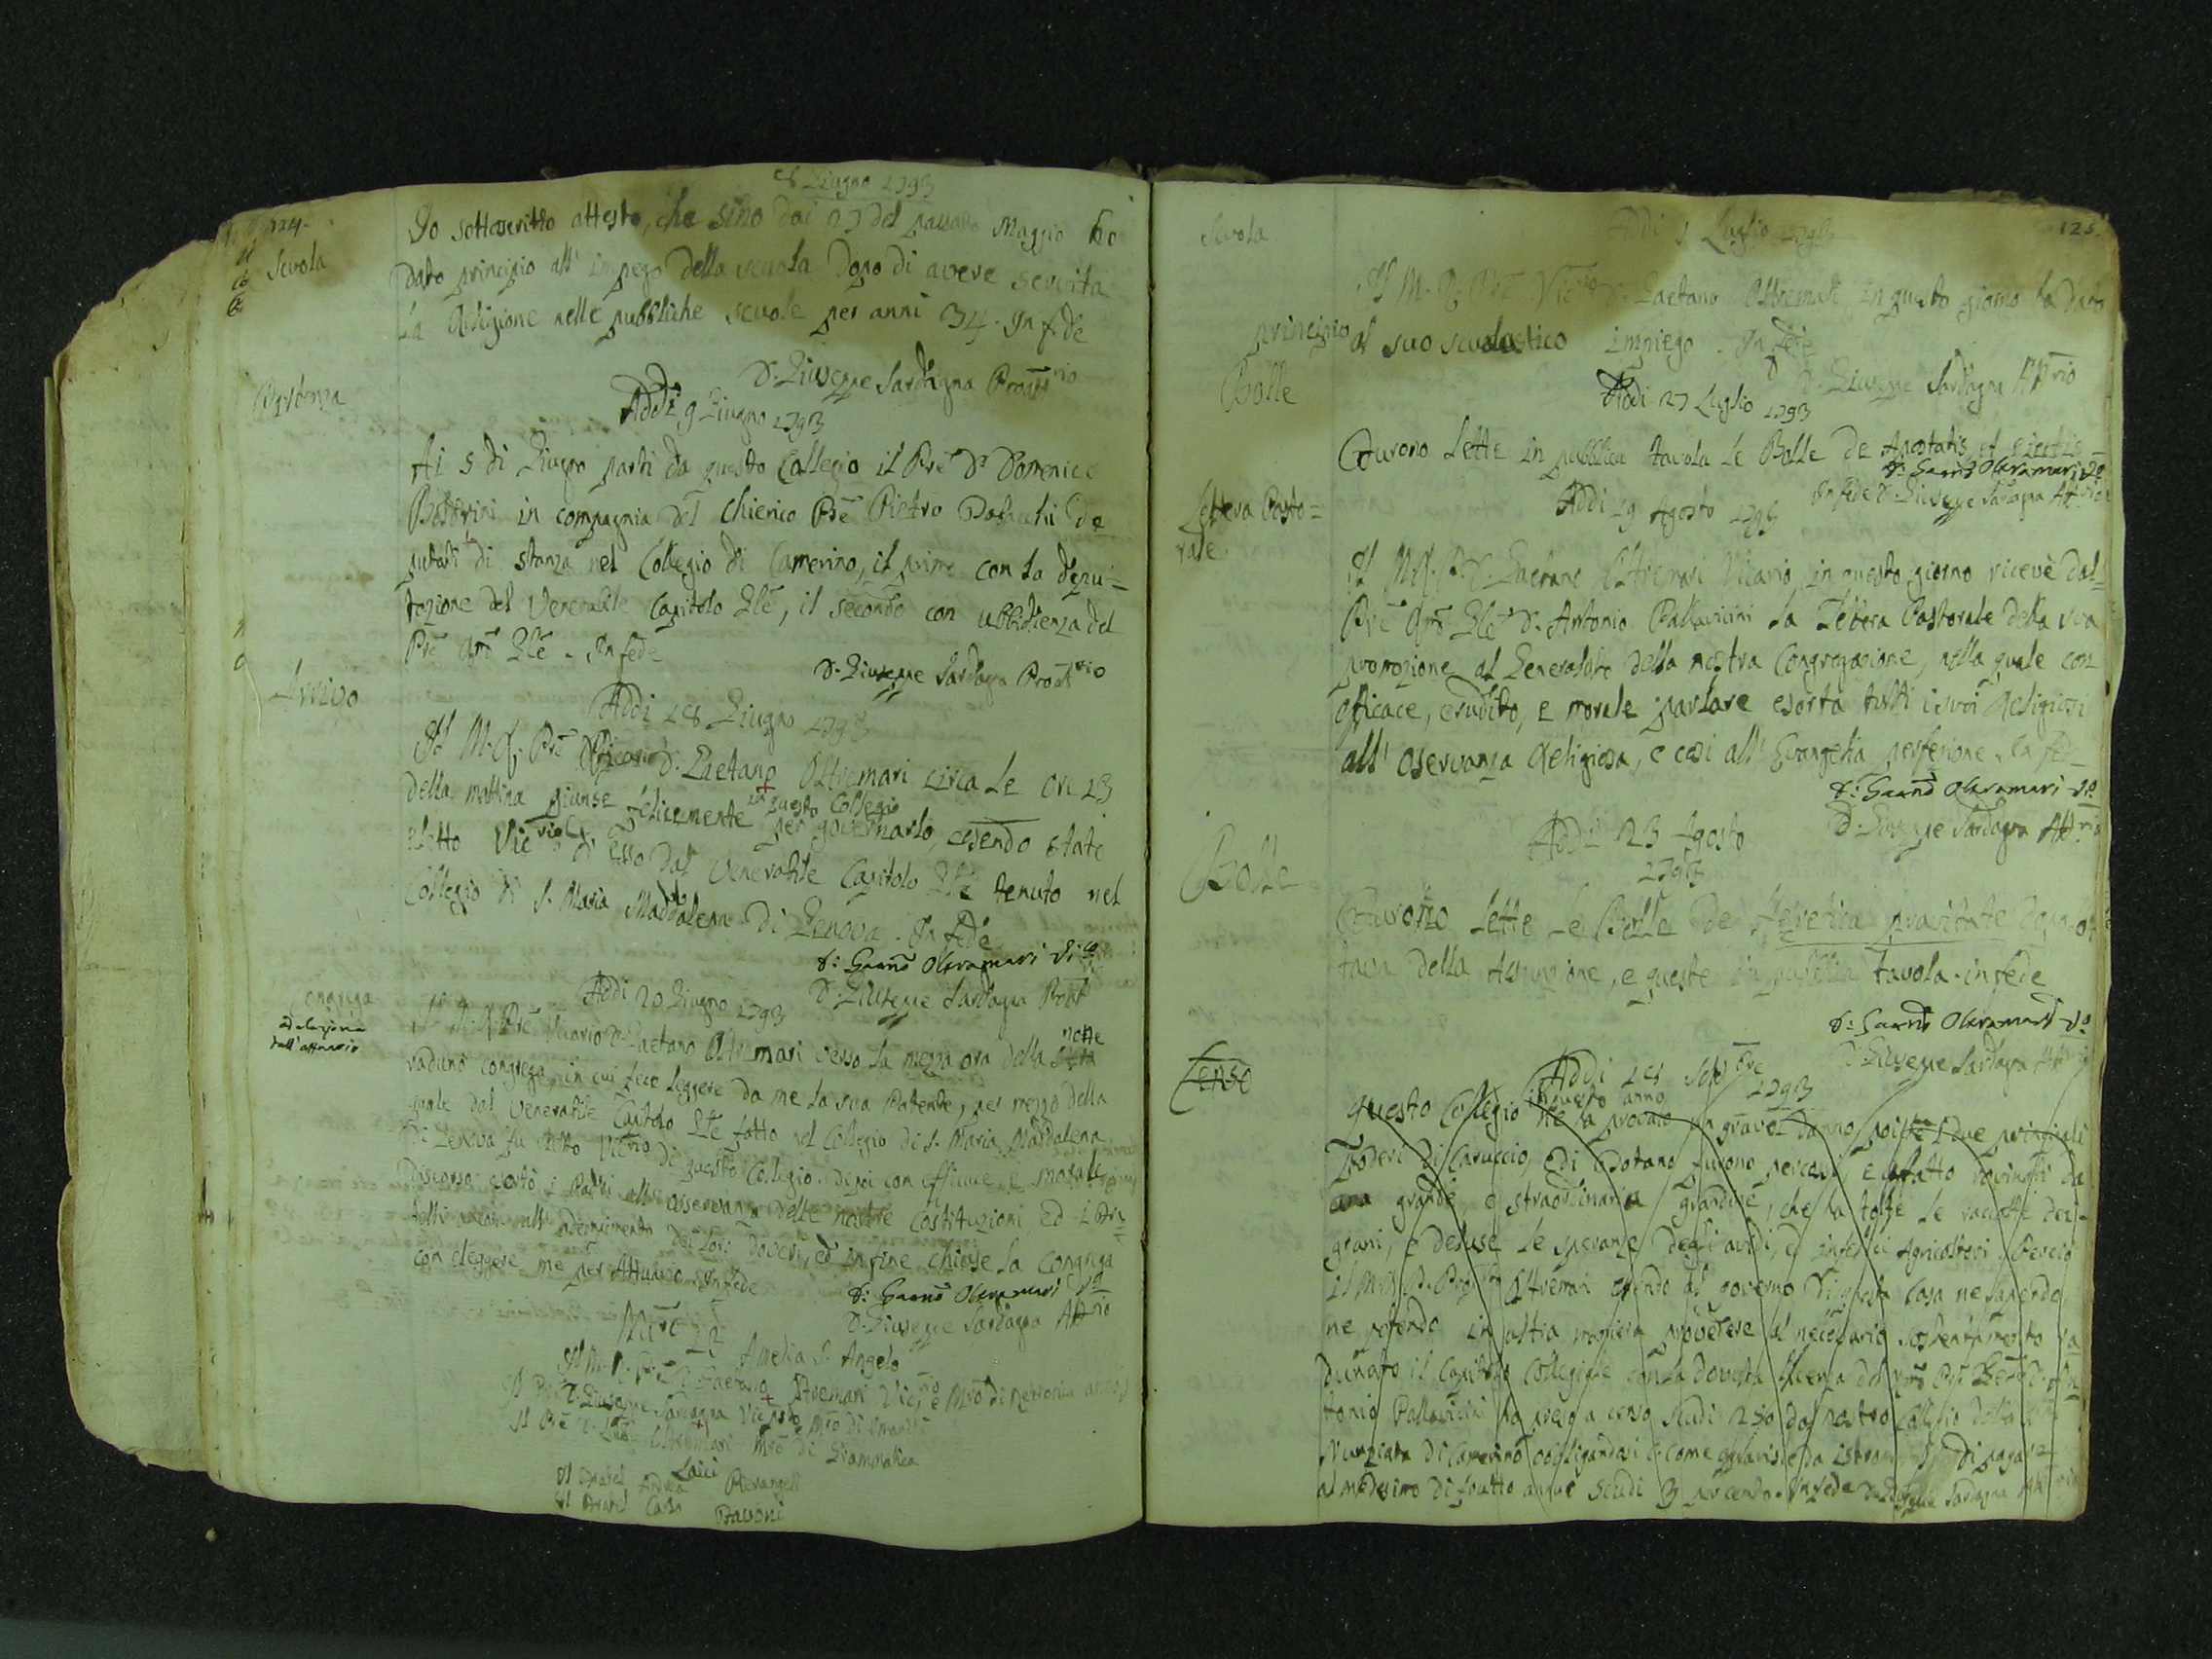 124.
8 Giugno 1793
Scuola
Io sottoscritto attesto, che sino dai 27 del passato Maggio ho
dato principio all' impego della scuola dopo di avere servita
la Religione nelle pubbliche scuole per anni 34. In fede
D. Giuseppe Sardagna Proatt.rio
Partenza
Addì 9 Giugno 1793
Ai 5 di Giugno partì da questo Collegio il Prē Dn Domenico
Baldrini in compagnia del Chierico Prē Pietro de
putati di stanza nel Collegio di Camerino, il primo con la depu-
tazione del Venerabile Capitolo Glē, il secondo con ubbidienza del
Prē Glē. In fede
D. Giuseppe Sardagna Proatt.rio
Arrivo
Addì 18 Giugno 1793
Il M. R. Prē Vicario D. Gaetano Oltremari circa le ore 13
della mattina giunse felicemente in questo Collegio
per governarlo, essendo stato
eletto Vic.rio di esso dal Venerabile Capitolo Glē tenuto nel
Collegio di S. Maria Maddalena di Genova. In fede
D: Gaetnō Oltramari Vic.o
D. Giuseppe Sardagna Proatt
Congrega
ed elezione
dell'attuario
Addì 20 Giugno 1793
Il M. R. Prē Vicario D. Gaetano Oltremari verso la mezza ora della notte
radunò congrega, in cui fece leggere da me la sua Patente, per mezzo della
quale dal Venerabile Capitolo Glē fatto nel Collegio di S. Maria Maddalena
di Genova fu eletto Vic.rio di questo Collegio. di poi con efficace, e morale
discorso esortò i Padri all' osservanza delle nostre Costituzioni, ed i Fra-
telli ancora all' adempimento dei loro doveri, ed in fine chiuse la Congrega
con eleggere me per Attuario. In fede
D: Gaetnō Oltramari V.o
D. Giuseppe Sardagna Att.rio
Amelia S. Angelo
Il M. R. P. D. Gaetano Oltremari Vic.rio, e Mrō di Rettorica
Il Prē D. Giuseppe Sardagna Mrō di
Il Prē D. Oltremari Mrō di Grammatica
Laici
Il Fratel Andrea Pierangeli
Il Fratel Carlo Pavoni
125.
Scuola
Addì 1 Luglio 1793
Il M. R. Prē Vic.rio D. Gaetano Oltremari in questo giorno ha dato
principio al suo scolastico impiego. In fede
D. Giuseppe Sardagna Att.rio
Bolle
Addì 27 Luglio 1793
Furono lette in pubblica tavola le Bolle de Apostatis, et ejectis -
D: Gaetnō Oltramari V.o
In fede D. Giuseppe Sardagna Att.rio
Lettera Pasto=
rale.
Addì 9 Agosto 1793
Il M. R. P. D. Gaetano Oltremari Vicario in questo giorno ricevè dal
Prē Glē D. Antonio Pallavicini la Lettera Pastorale della sua
promozione al Generalato della nostra Congregazione, nella quale con
efficace, erudito, e morale parlare esorta tutti i suoi Religiosi
all' osservanza Religiosa, e così all' Evangelica perfezione. In fede
D: Gaetnō Oltramari V.o
D. Giuseppe Sardagna Att.rio
Bolle
Addì 23 Agosto
1793
Furono lette le Bolle de Heretica pravitate dopo l'ot
tava della Assunzione, e queste in pubblica tavola. in fede
D: Gaetnō Oltramari V.o
D. Giuseppe Sardagna Att.rio
Censo
Addì 18 1793
Questo Collegio in questo anno ne ha provato un grave danno, poiché i due principali
Poderi di Caruccio, e di furono percossi, e affatto rovinati da
una grande, e straordinaria grandine, che ha tolte le raccolte dei
grani, e deluse le speranze degli avidi, ed infelici Agricoltori. Perciò
il M. R. P. Oltremari essendo al governo di questa Casa ne sapendo
ne potendo in altra maniera provedere al necessario sostentamento ra
dunato il Capitolo Collegiale con la dovuta licenza del D. An
tonio Pallavicini ha preso a censo scudi 250 dal nostro Collegio della
Nunziata di Camerino obbligandosi come apparisce da di pagare
al medesimo di frutto annuo scudi 3 per cento. In fede D. Giuseppe Sardagna Att.rio